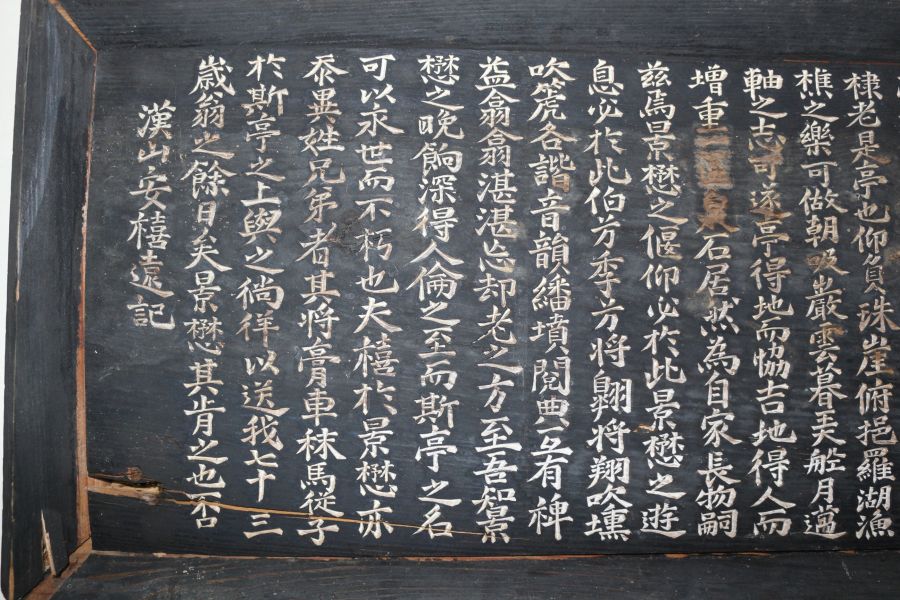 棣老是亭也仰負珠崖俯挹羅湖漁
樵之樂可做朝吸巖雲暮美舩月薖
軸之志可遂亭得地而協吉地得人而
增重石居然為自家長物嗣
玆焉景懋之偃仰必於此景懋之遊
息必於此伯芳季芳將翺將翔吹壎
吹箎各諧音韻繙墳閱典互有裨
益翕翕湛湛忘却老之方至吾知景
懋之晚餉深得人倫之至而斯亭之名
可以永世而不朽也夫禧於景懋亦
忝異姓兄弟者其將膏車秣馬從子
於斯亭之上與之徜徉以送我七十三
歲翁之餘日矣景懋其肯之也否
漢山安禧遠記